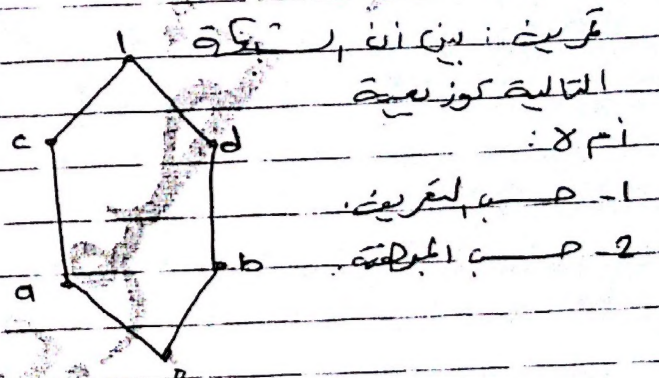 تمرين: بين أن الشبكة
التالية توزيعية
أم لا:
1- حسب التعريف.
2- حسب المبرهنة.
1
c d
a b